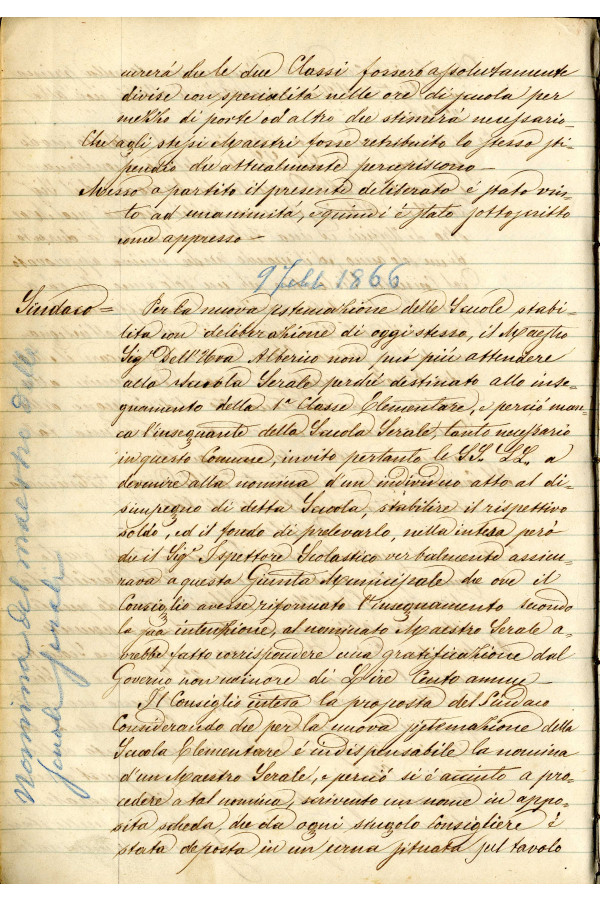 curerà che le due Classi fossero assolutamente
divise con specialità nelle ore di scuola per
mezzo di porte od altro che stimerà necessario
Che agli stessi Maestri fosse retribuito lo stesso sti-
pendio che attualmente percepiscono
Messo a partito il presente deliberato è stato vin-
to ad unanimità, e quindi è stato sottoscritto
come appresso –
9 Febb. 1866
Sindaco =
Per la nuova sistemazione delle Scuole stabi-
lita con deliberazione di oggi stesso, il Maestro
Sigr. Dell'Uva Alberico non può più attendere
alla Scuola Serale perchè destinato allo inse-
gnamento della 1a Classe Elementare, e perciò man-
ca l'insegnante della Scuola Serale, tanto necessario
in questo Comune, invito pertanto le SS. LL. a
devenire alla nomina d'un individuo atto al di-
simpegno di detta Scuola, stabilire il rispettivo
soldo, ed il fondo di prelevarlo, nella intesa però
che il Sigr. Ispettore Scolastico verbalmente assicu-
rava a questa Giunta Municipale che ove il
Consiglio avesse riformato l'insegnamento secondo
la sua intenzione, al nominato Maestro Serale a-
vrebbe fatto corrispondere una gratificazione dal
Governo non minore di Lire Cento annue –
Il Consiglio intesa la proposta del Sindaco
Considerando che per la nuova sistemazione della
Scuola Elementare è indispensabile la nomina
d'un Maestro Serale, e perciò si è accinto a pro-
cedere a tal nomina, scrivento un nome in appo-
sita scheda, che da ogni singolo Consigliere è
stata deposta in un urna situata sul tavolo
Nomina del maestro delle
scuole serale